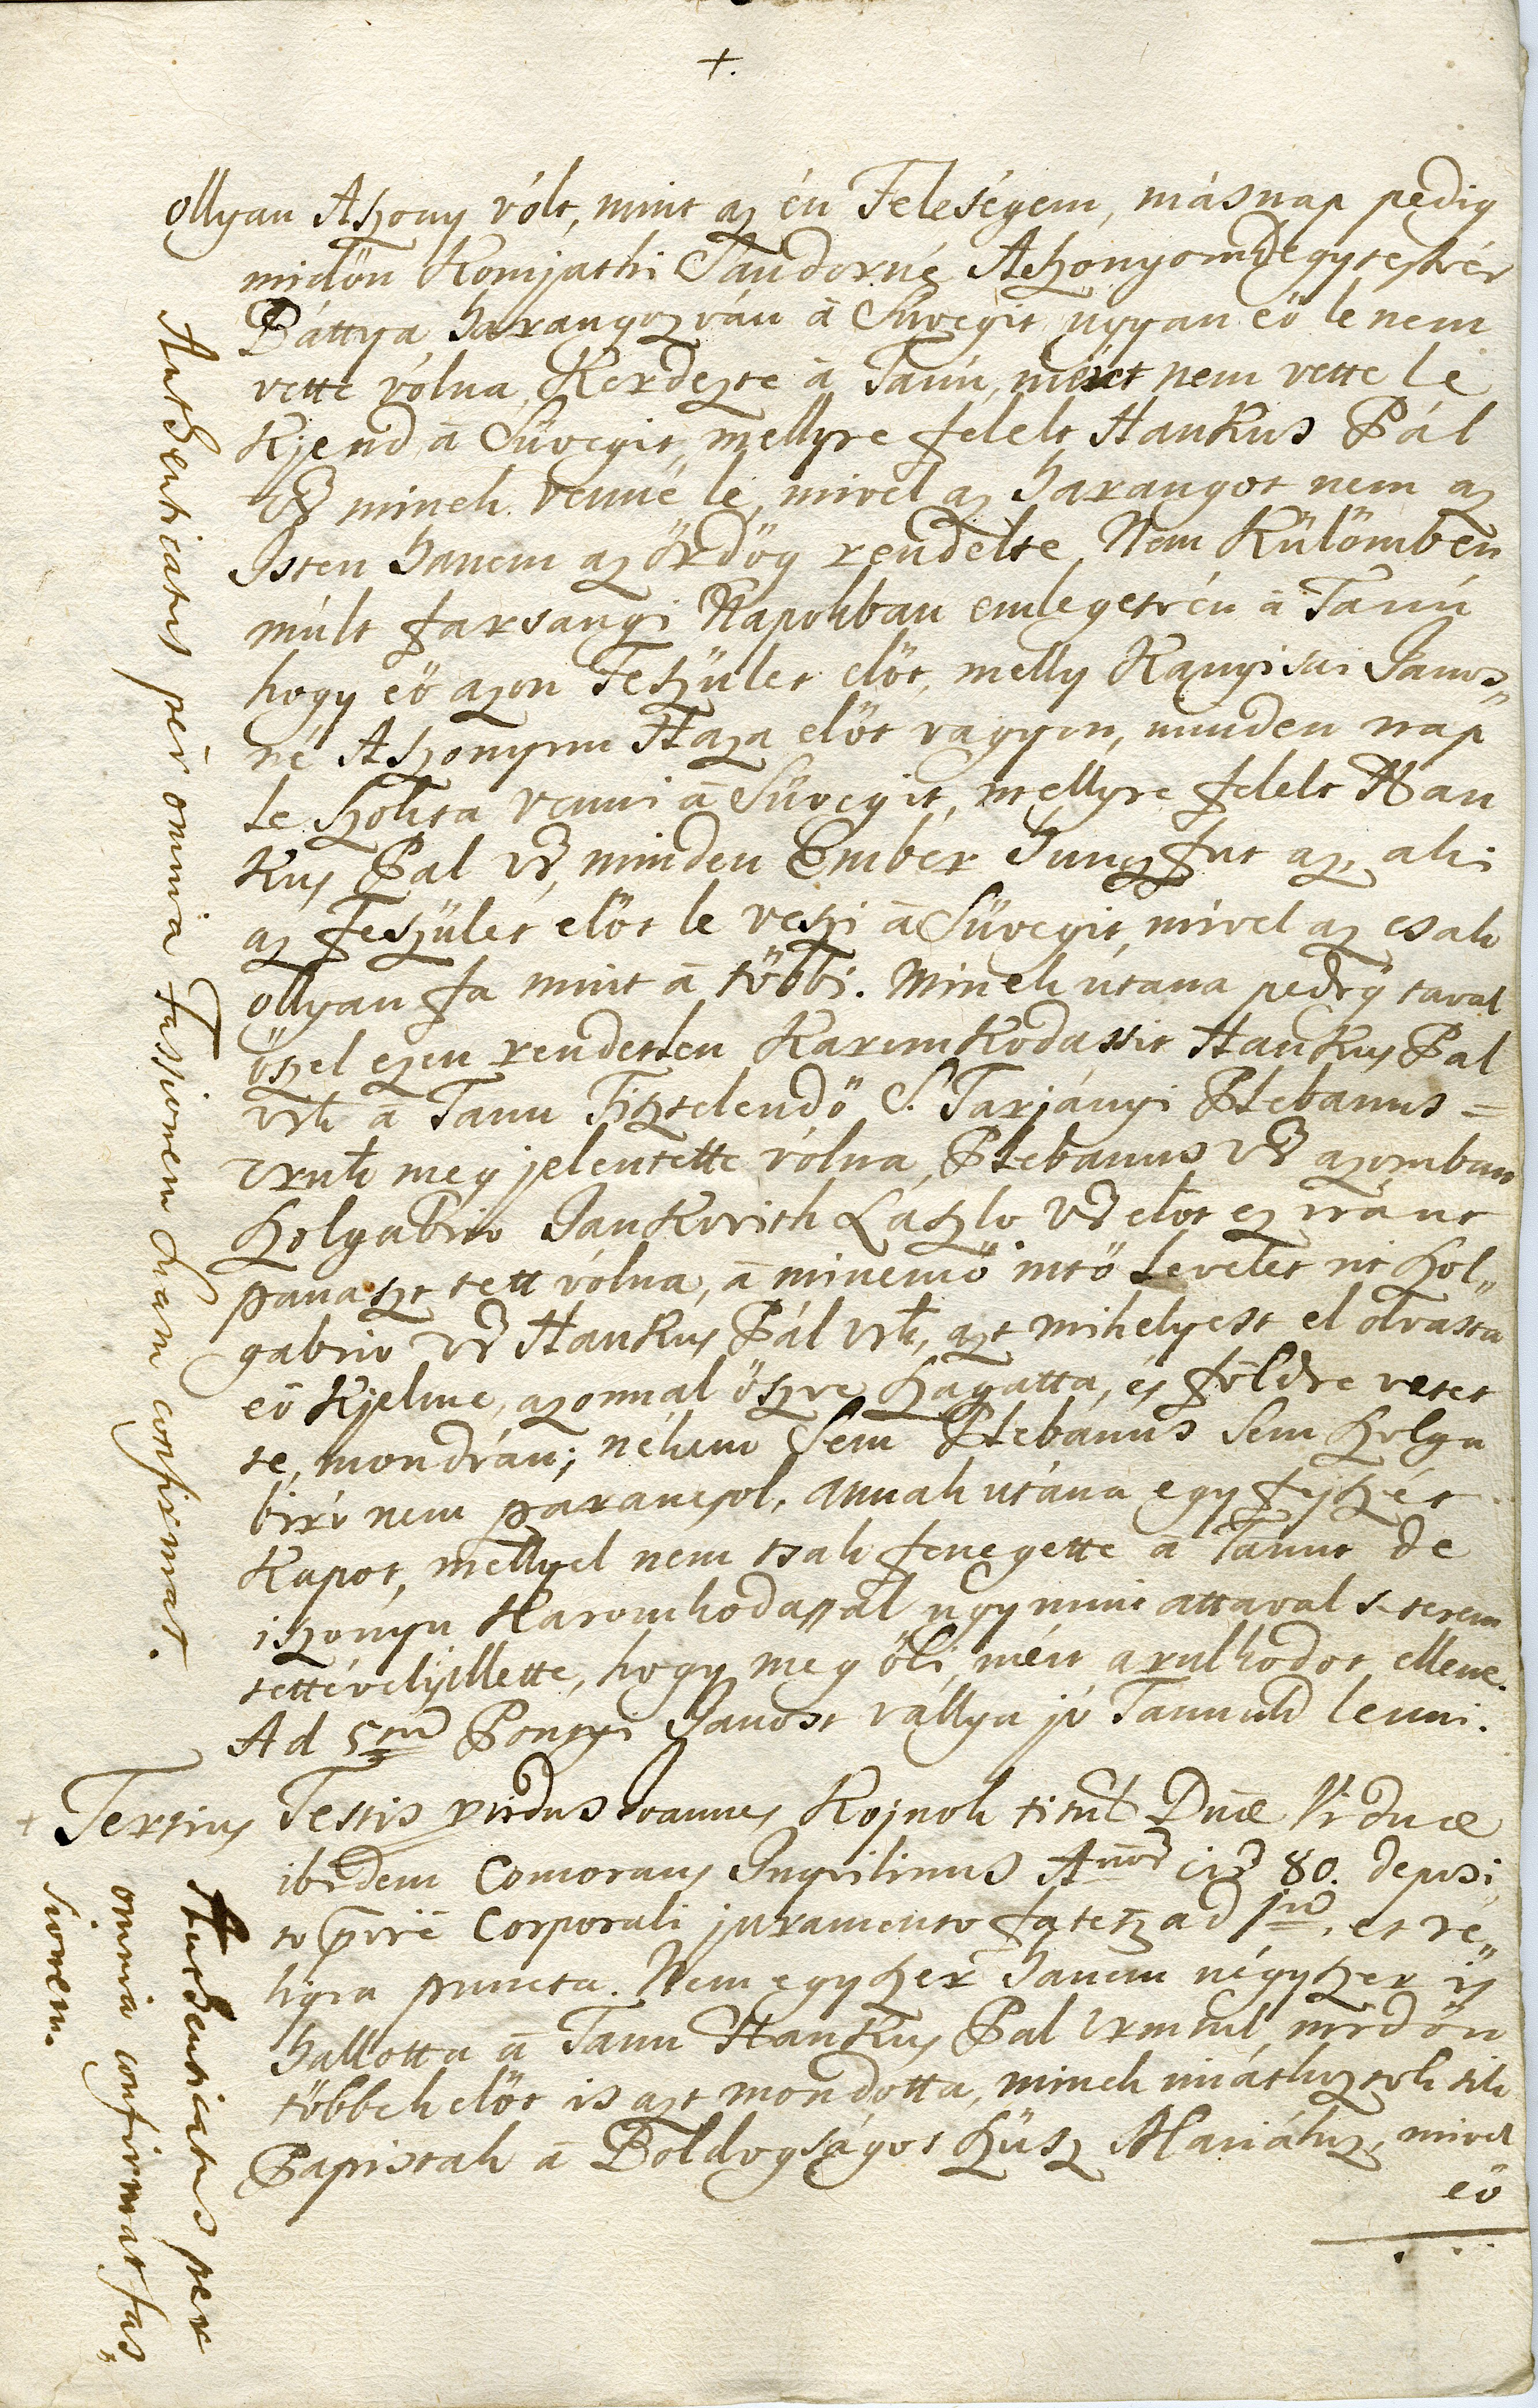 +.
ollyan Aszony vólt, mint az én Feleségem, másnap pedig
midőn Komjathi Sándorné Aszonyomh egytestvér
Báttya harangozván à Süvegit ugyan eö le nem
vette vólna, Kerdezte à Tanú, miért nem vette le
Kjend à Süvegit, mellyre felelt Hankus Pál
Ur mineh venné le, mivel az harangot nem az
Isten hanem az ördög rendelte, Nem Külömben
múlt farsangi Napohban emlegetvén à Tanú
hogy eö azon Feszület elöt, melly Kanisai János„
né Aszonyom Haza elöt vagyon, minden nap
le szohta venni à Süvegit, mellyre felelt Han
kus Pal Ur, minden Ember Hunczfut az, ahi
az feszület elöt le veszi à Süvegit, mivel az csah
ollyan fa mint à többi. Mineh utana pedig taval
öszel ezen rendetlen Karomkodassit Hankus Pal
Urh à Tanu Tisztelendö S. Tarjányi Plebanus =
Urunh meg jelentette vólna, Plebanus Ur azomban
Szolgabiro Jankovith László Ur elöt ez iránt
panaszt tett vólna, à minemö intö levelet irt Szol„
gabiro Ur Hankus Pál Urh, azt mihelyest el olvasta
eö Kjelme, azonnal öszve szagatta, és földre vetet
te, mondván; nehem sem Plebánus sem Szolga
biró nem parancsol, annah utána egy fejszét
kapot, mellyel nem tsah fenegette à Tanut de
iszonyu Karomhodassal ugymint attaval s teremtettével illette, hogy meg öli, mért arulhodot ellene.
Ad 5tum Pongyi Janost vallya jó Tanunah lenni.
+ Tertius Testis providus Ioannes Kojnoh titul. Dnae Viduae
ibidem Comorans Inquilinus Annor cir 80. deposi„
to prie Corporali juramento fatetr ad 1um, et re„
liqua puncta. Nem egyszer hanem négyszer is
hallotta à Tanu Hankus Pal Uramtul, midön
többeh elöt is azt mondotta, mineh imáthoztoh tih
Papistah à Boldogságos Szüsz Mariához, mivel
eö
Authenticatus per omnia Fassionem suam confirmat.
Authenticatus per
omnia confirmat fas„
sionem.